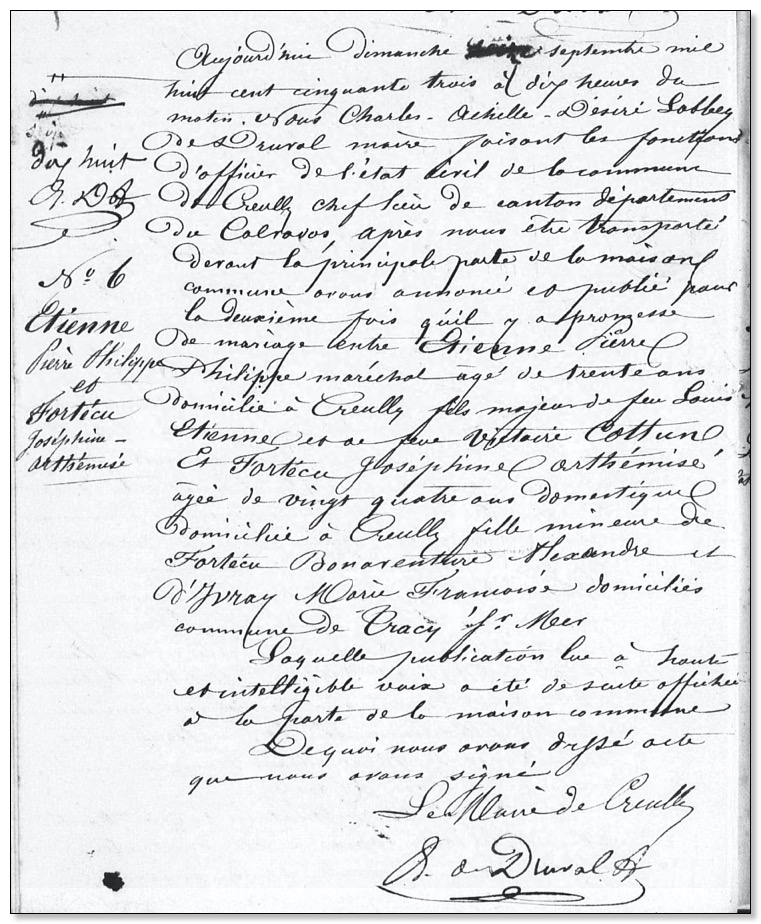 dix huit
A. D
N° 6
Etienne
Pierre Philippe
et
Fortécu
Joséphine -
arthémise
Aujourd'hui dimanche septembre mil
huit cent cinquante trois à dix heures du
matin. Nous Charles - Achille - Désiré Labbey
de Druval maire faisant les fonctions
d'officier de l'état civil de la commune
de Creully chef lieu de canton département
du Calvados, après nous être transporté
devant la principale porte de la maison
commune avons annoncé et publié pour
la deuxième fois qu'il y a promesse
de mariage entre Etienne Pierre
Philippe maréchal agé de trente ans
domicilié à Creully fils majeur de feu Louis
Etienne et de feue Victoire Cottun
Et Fortécu Joséphine arthémise
agée de vingt quatre ans domestique
domiciliée à Creully fille mineure de
Fortécu Bonaventure Alexandre et
d'Yvray Marie Francoise domiciliés
commune de Tracy Sr Mer
Laquelle publication lue à haute
et intelligible voix a été de suite affichée
à la porte de la maison commune
De quoi nous avons dressé acte
que nous avons signé
Le Maire de Creully
A. de Druval